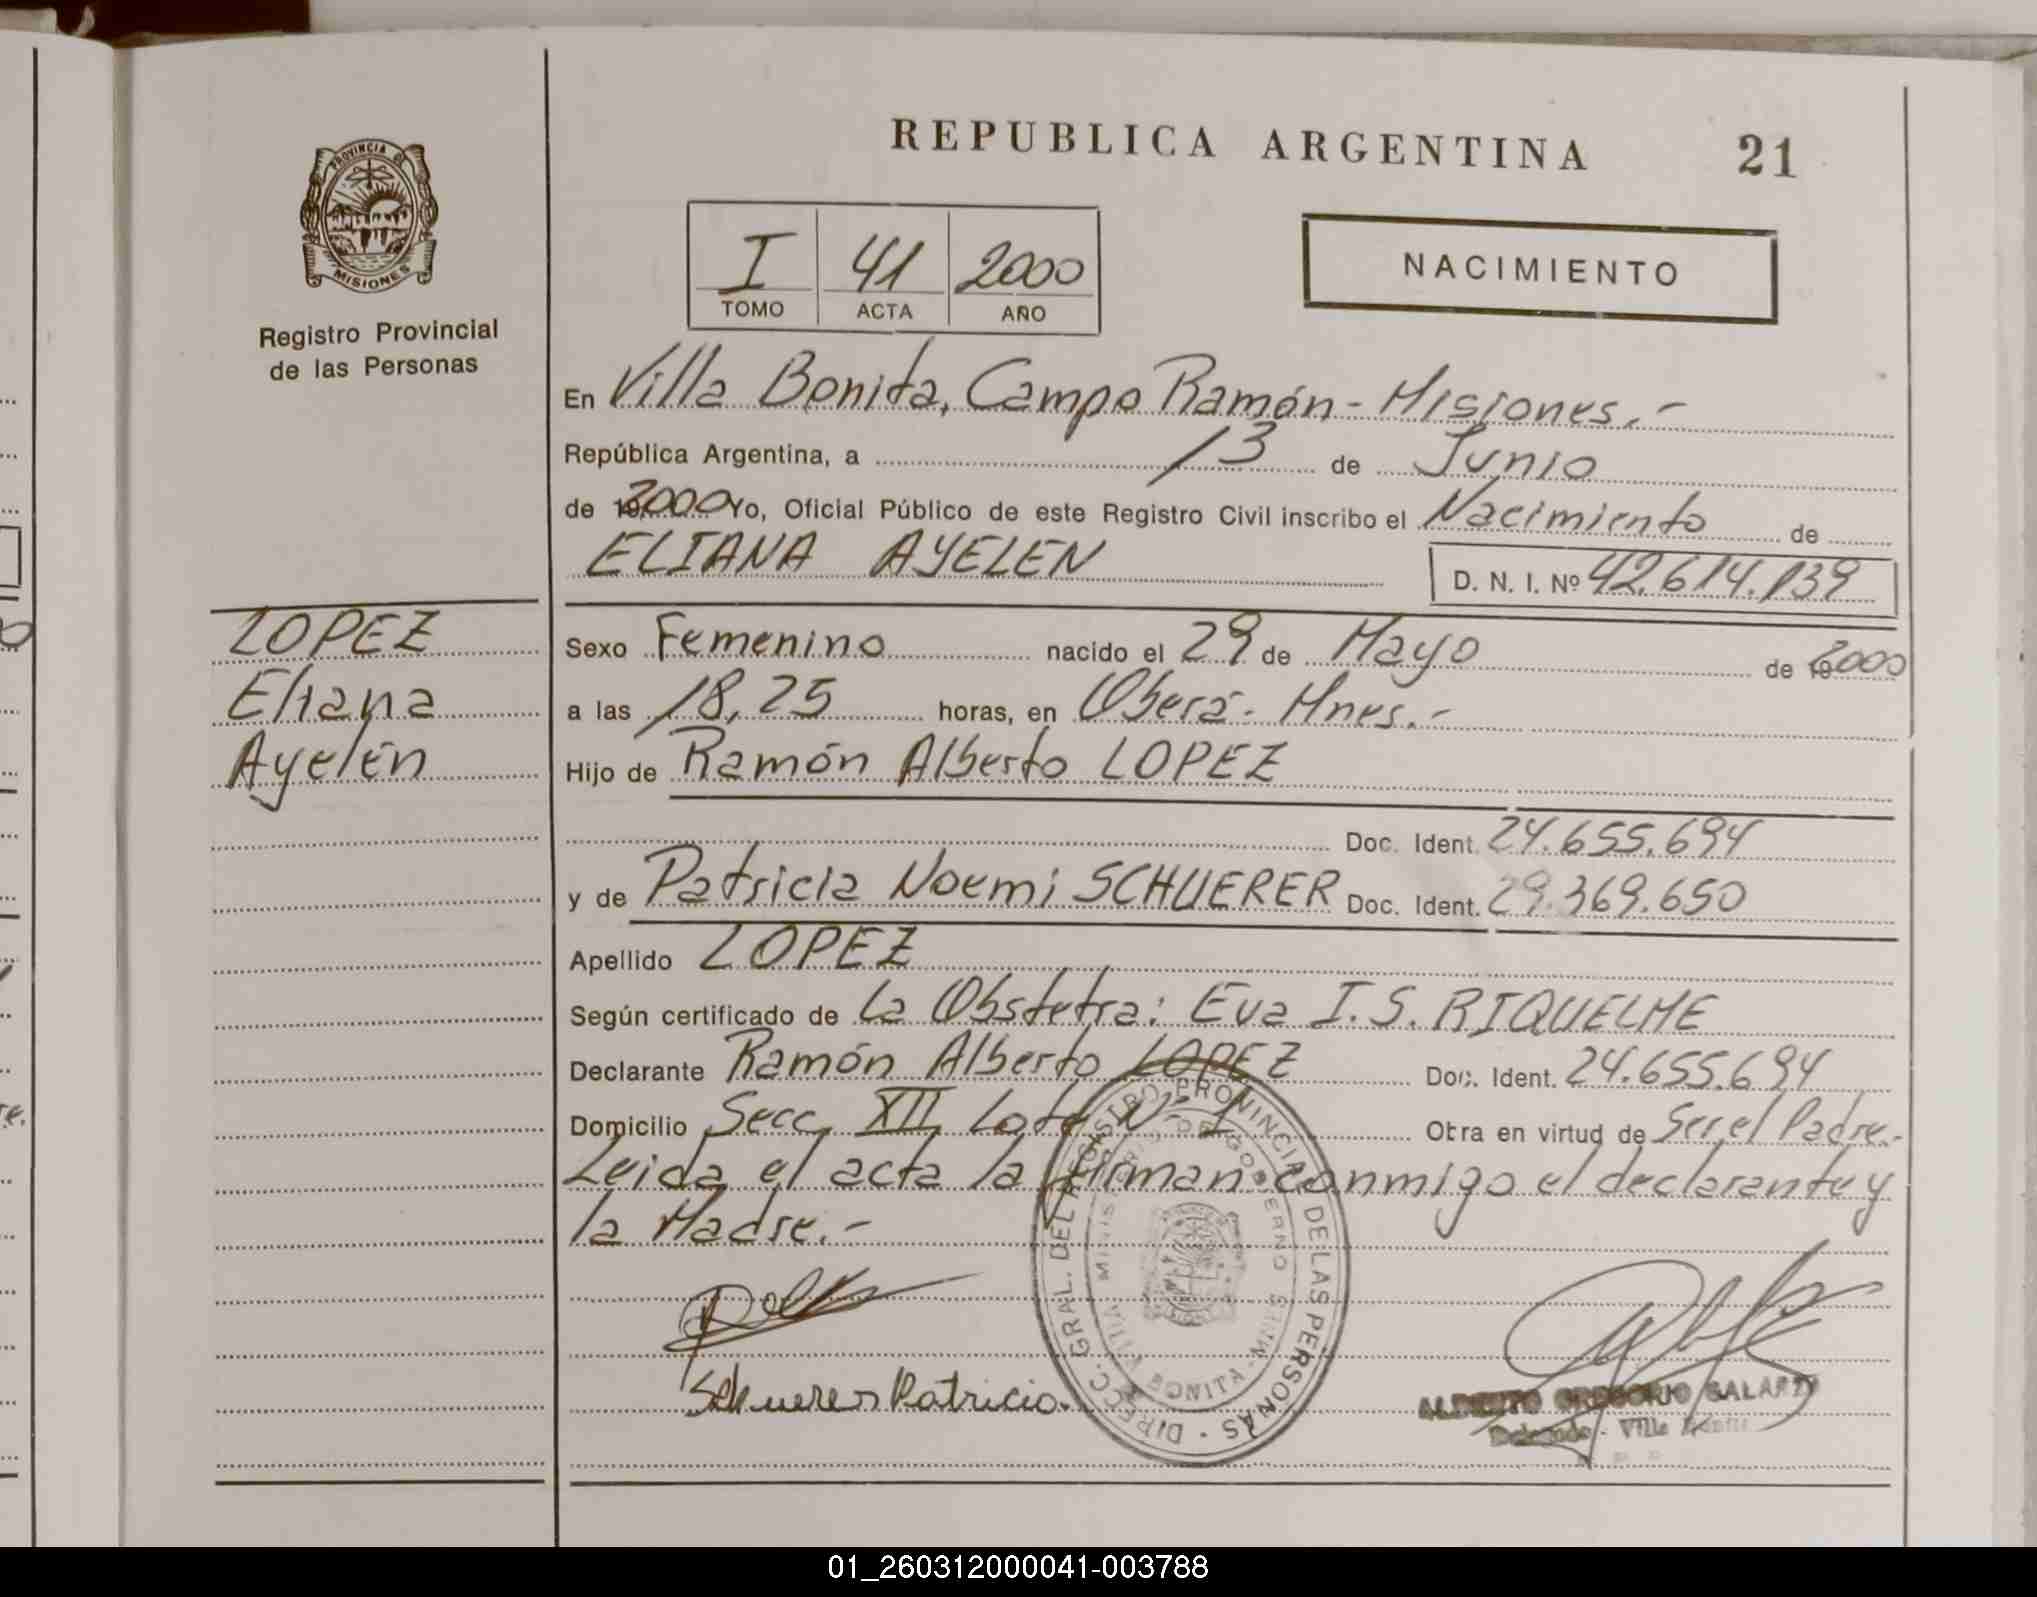 REPUBLICA ARGENTINA 21
PROVINCIA DE
MISIONES
Registro Provincial
de las Personas
I 41 2000
TOMO ACTA AÑO
NACIMIENTO
En Villa Bonita, Campo Ramón - Misiones.-
República Argentina, a 13 de Junio
de 2000 Yo, Oficial Público de este Registro Civil inscribo el Nacimiento de
ELIANA AYELEN D. N. I. Nº 42.614.139
LOPEZ
Eliana
Ayelén
Sexo Femenino nacido el 29 de Mayo de 2000
a las 18,25 horas, en Oberá - Mnes.-
Hijo de Ramón Alberto LOPEZ
Doc. Ident. 24.655.694
y de Patricia Noemi SCHUERER Doc. Ident. 29.369.650
Apellido LOPEZ
Según certificado de La Obstetra: Eva I. S. RIQUELME
Declarante Ramón Alberto LOPEZ Doc. Ident. 24.655.694
Domicilio Secc. XII Lote Nº 1 Obra en virtud de Ser el Padre.-
Leida el acta la firman conmigo el declarante y
la Madre.-
DIRECC. GRAL. DEL REGISTRO PROVINCIAL DE LAS PERSONAS
MINISTERIO DE GOBIERNO
VILLA BONITA - MNES
Schuerer Patricia.
GREGORIO GALARZA
Delegado - Villa Bonita
01_260312000041-003788